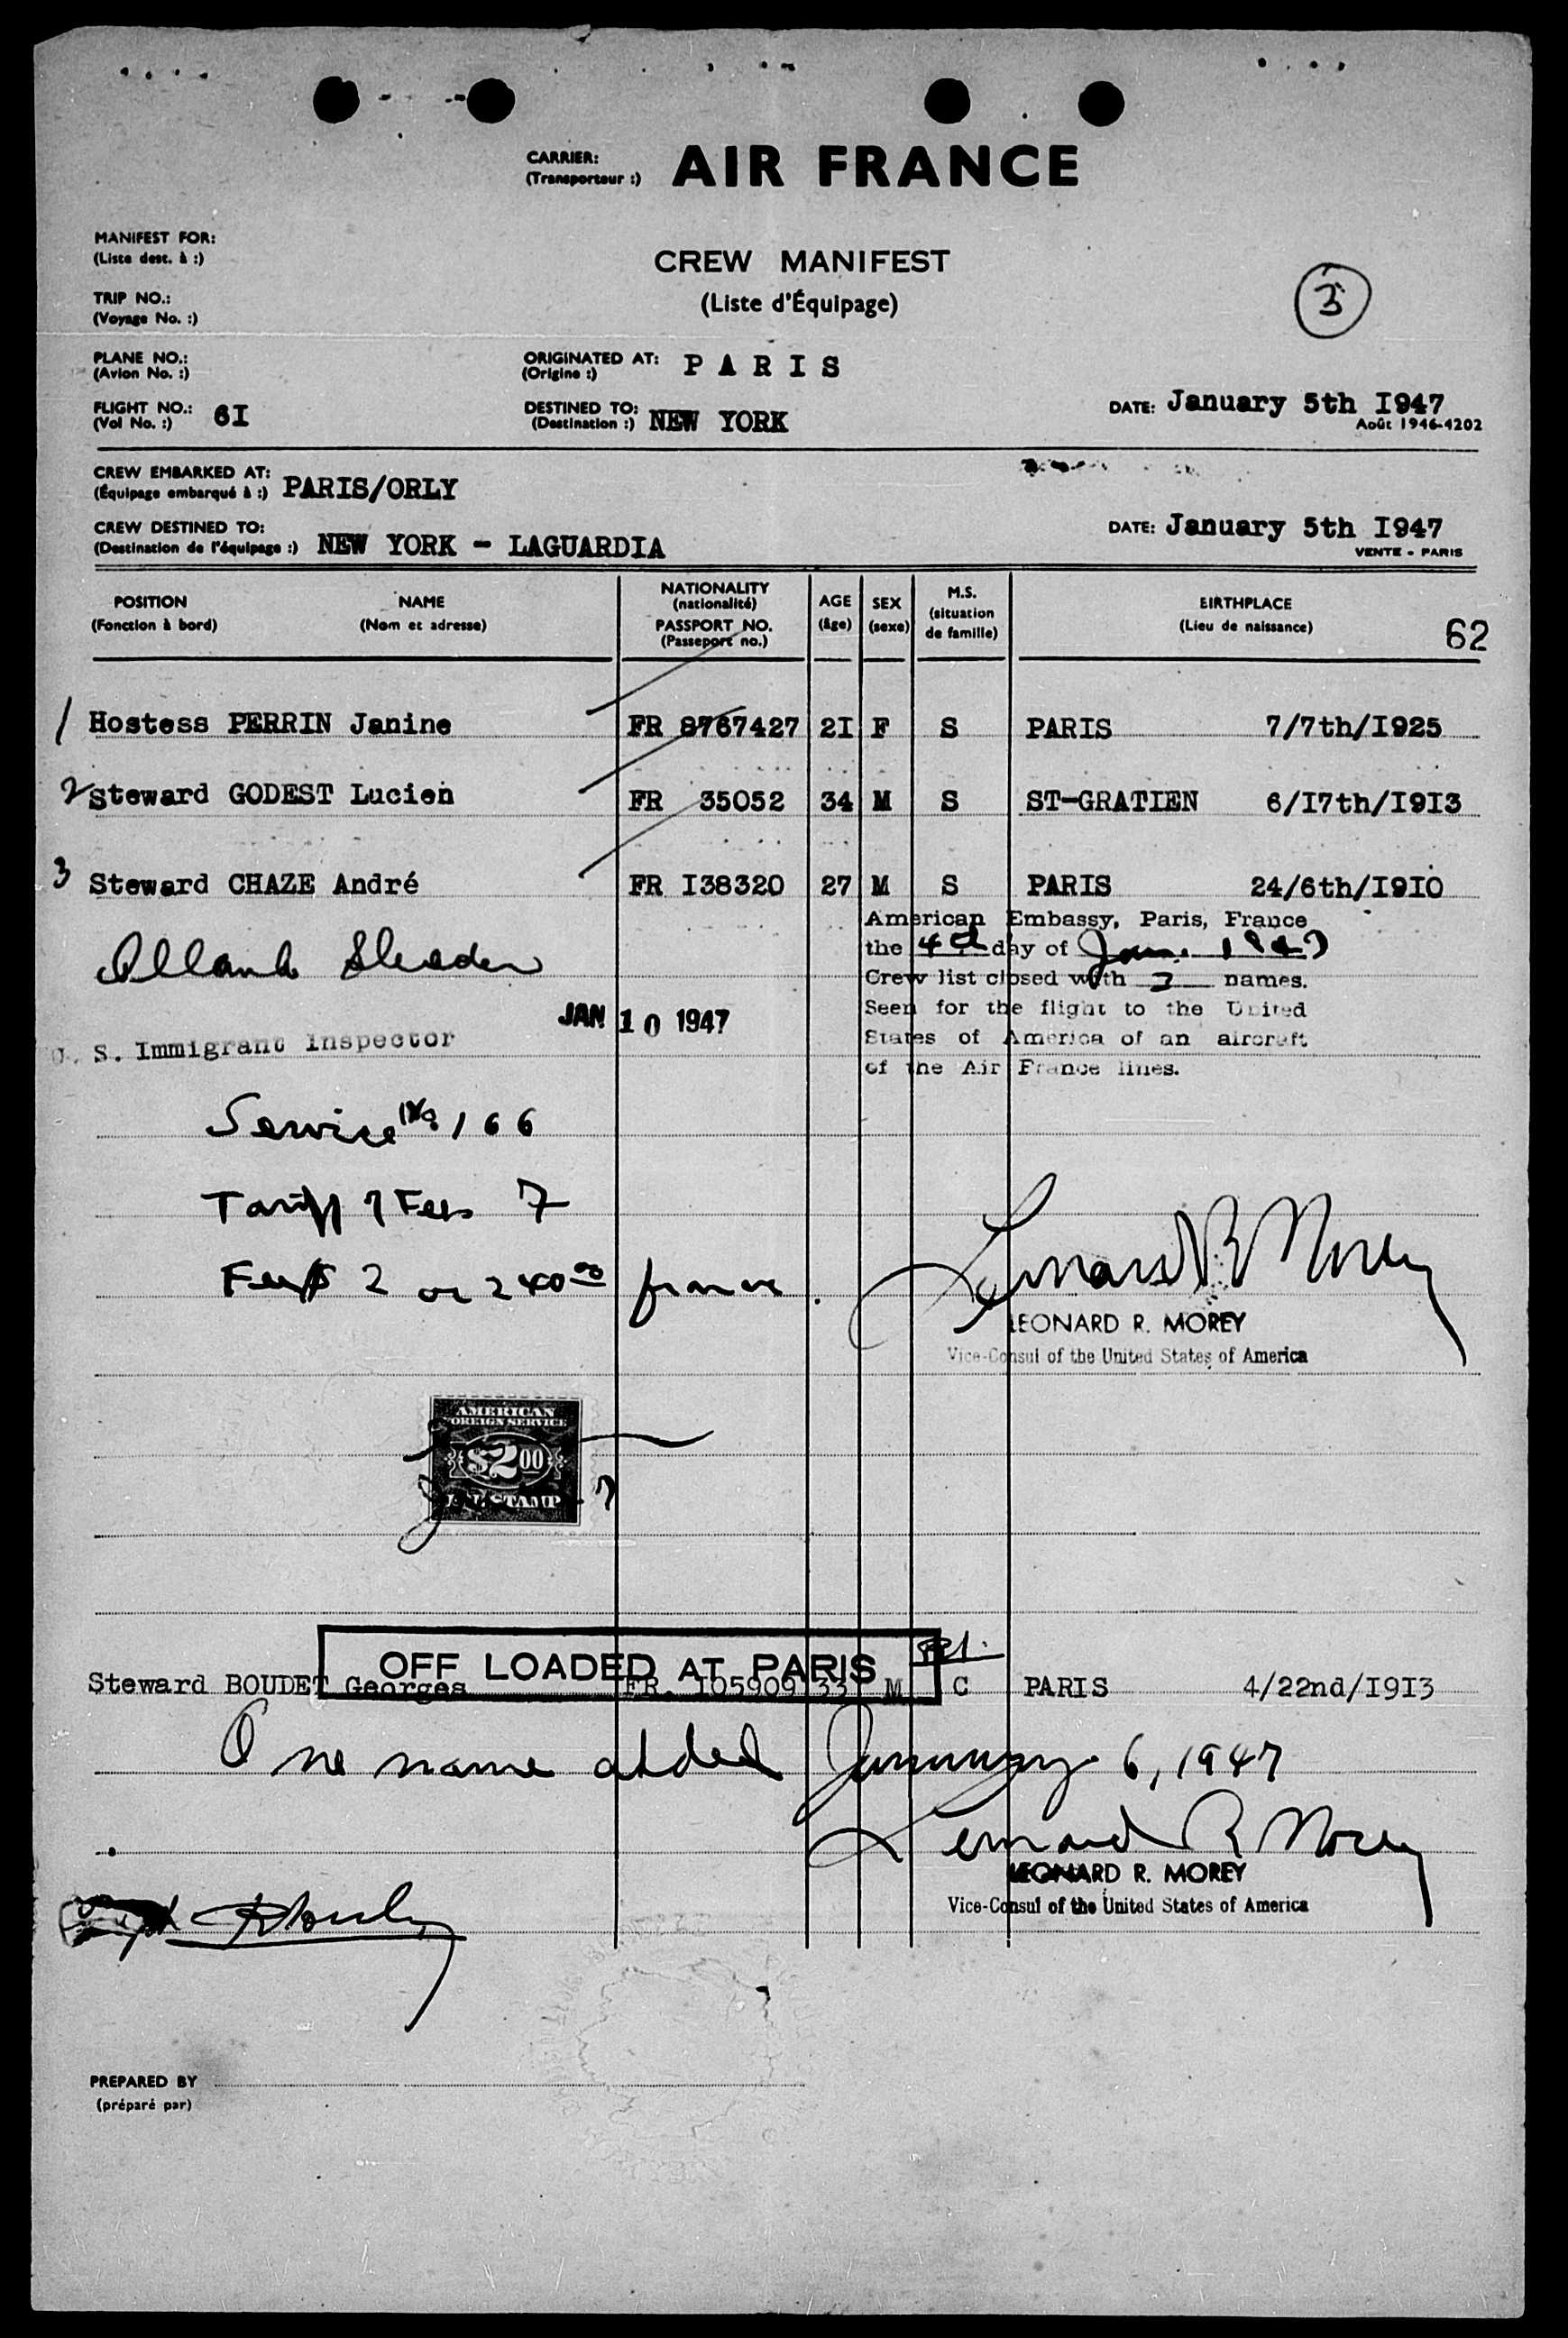 CARRIER: AIR FRANCE
(Transporteur :)
MANIFEST FOR:
(Liste dest. à :)
CREW MANIFEST
(Liste d'Équipage)
3
TRIP NO.:
(Voyage No. :)
PLANE NO.:
(Avion No. :)
ORIGINATED AT: PARIS
(Origine :)
FLIGHT NO.: 6I
(Vol No. :)
DESTINED TO: NEW YORK
(Destination :)
DATE: January 5th I947
Août 1946-4202
CREW EMBARKED AT: PARIS/ORLY
(Équipage embarqué à :)
CREW DESTINED TO: NEW YORK - LAGUARDIA
(Destination de l'équipage :)
DATE: January 5th I947
VENTE - PARIS
POSITION NAME NATIONALITY AGE SEX M.S. BIRTHPLACE
(Fonction à bord) (Nom et adresse) (nationalité) (âge) (sexe) (situation de famille) (Lieu de naissance)
PASSPORT NO.
(Passeport no.)
62
1 Hostess PERRIN Janine FR 8767427 2I F S PARIS 7/7th/I925
2 Steward GODEST Lucien FR 35052 34 M S ST-GRATIEN 6/I7th/I9I3
3 Steward CHAZE André FR I38320 27 M S PARIS 24/6th/I9I0
American Embassy, Paris, France
the 4th day of Jan. 1947
Crew list closed with 3 names.
Seen for the flight to the United
States of America of an aircraft
of the Air France lines.
JAN 10 1947
U. S. Immigrant Inspector
Service No. 166
Tariff of Fees 7
Fee $ 2 or 240.00 francs.
Leonard R Morey
LEONARD R. MOREY
Vice-Consul of the United States of America
AMERICAN
FOREIGN SERVICE
$2.00
FEE STAMP
OFF LOADED AT PARIS
Steward BOUDET Georges FR. I05909 33 M C PARIS 4/22nd/I9I3
One name added January 6, 1947
Leonard R Morey
LEONARD R. MOREY
Vice-Consul of the United States of America
PREPARED BY
(préparé par)